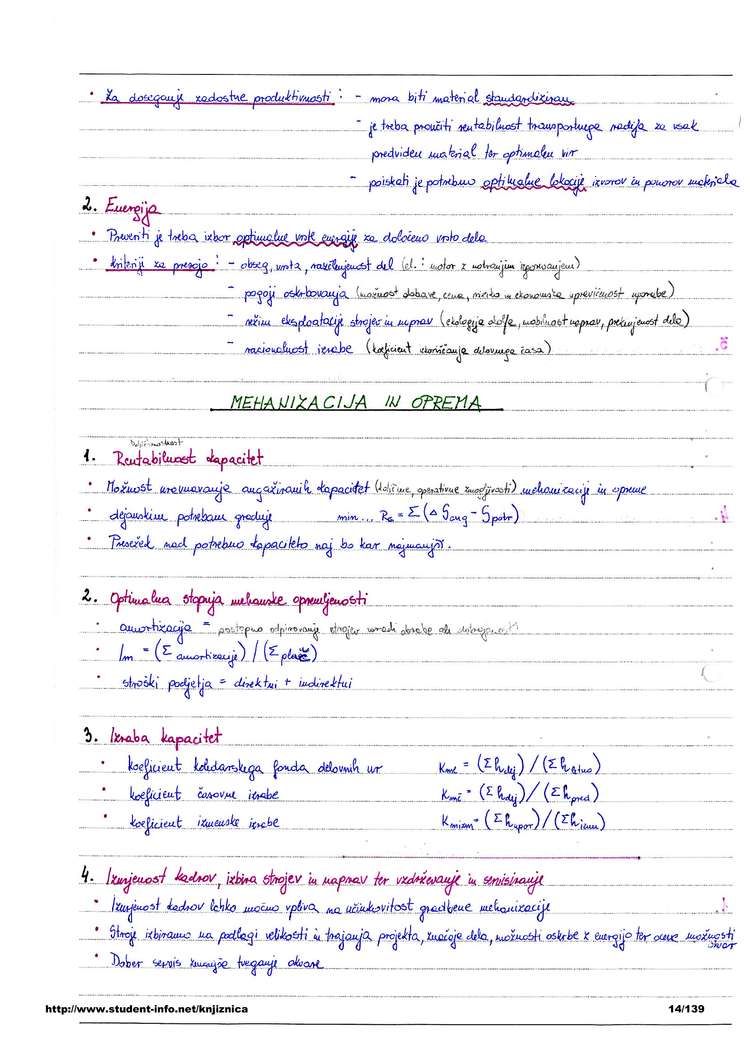 • Za doseganje zadostne produktivnosti : - mora biti material standardiziran
- je treba proučiti rentabilnost transportnega radija za vsak
predviden material ter optimalen vir
- poiskati je potrebno optimalne lokacije izvorov in ponorov materiala
2. Energija
• Preveriti je treba izbor optimalne vrste energije za določeno vrsto dela
• kriteriji za presojo : - obseg, vrsta, razčlenjenost del (el. : motor z notranjim izgorevanjem)
- pogoji oskrbovanja (možnost dobave, cena, riziko in ekonomska upravičenost uporabe)
- režim eksploatacije strojev in naprav (ekologija okolja, mobilnost naprav, prekinjenost dela)
- racionalnost izrabe (koeficient izkoriščanja delovnega časa)
MEHANIZACIJA IN OPREMA
1. Rentabilnost kapacitet
• Možnost uravnavanja angažiranih kapacitet (količine, operativne zmogljivosti) mehanizacije in opreme
• dejanskim potrebam gradnje min... Rₖ = Σ (Δ Sang - Spotr)
• Presežek nad potrebno kapaciteto naj bo kar najmanjši.
2. Optimalna stopnja mehanske opremljenosti
• amortizacija = postopno odpisovanje strojev zaradi obrabe ali
• Im = (Σ amortizacije) / (Σ plače)
• stroški podjetja = direktni + indirektni
3. Izraba kapacitet
• koeficient koledarskega fonda delovnih ur Kmk = (Σ hdej) / (Σ h)
• koeficient časovne izrabe Kmč = (Σ hdej) / (Σ hpred)
• koeficient izmenske izrabe Kmizm = (Σ hupor) / (Σ hizm)
4. Izurjenost kadrov, izbira strojev in naprav ter vzdrževanje in servisiranje
• Izurjenost kadrov lahko močno vpliva na učinkovitost gradbene mehanizacije
• Stroje izbiramo na podlagi velikosti in trajanja projekta, značaja dela, možnosti oskrbe z energijo ter ocene možnosti okvar
• Dober servis zmanjša tveganje okvare
http://www.student-info.net/knjiznica 14/139